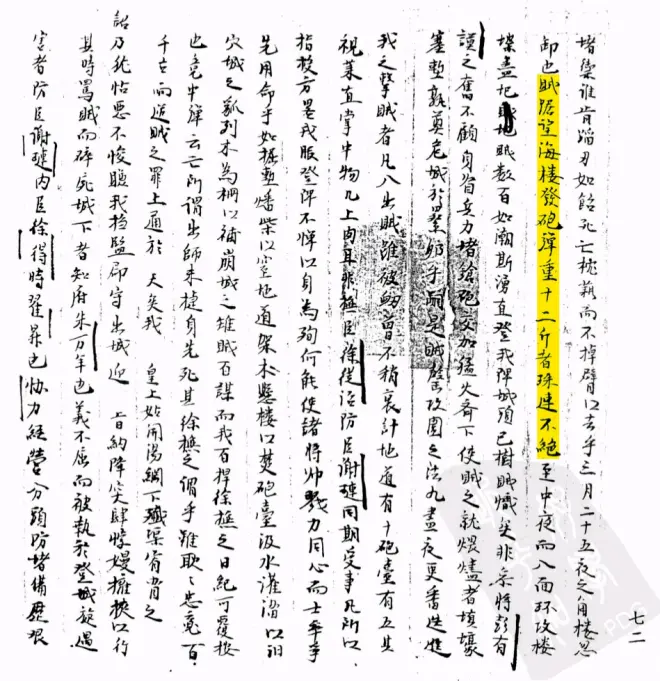 堵禦誰肯蹈刃如飴死亡枕藉而不掉臂以去乎三月二十五夜之角樓忽
卸也賊踞望海樓發砲彈重十二斤者珠連不絕至中夜而八面环攻樓
堞盡圮賊數百如潮斯湧直登我陴城頭已樹賊幟矣非示將彭有
謨之奮不顧身省兵力堵鎗砲交加猛火齊下使賊之就煨燼者填壕
塞塹孰奠危城於嗣是賊攻圍之法九盡夜更番迭進
我之擊賊者凡八出賊雖被曾不稍衰計地道有十砲臺有五其
視萊直掌中物几上肉耳非撫臣徐從治防臣謝璉同期受事凡所以
指授方畧我服登陴不憚以身為殉何能使諸將帅戮力同心而士卒争
先用命乎如掘塹燔柴以空地道架木懸樓以焚砲臺汲水灌溜以泪
穴城之列木為柵以補崩城之雉賊百謀而我百捍徐撫之日紀可覆按
也竟中彈云亡所謂出師未捷身先死其徐撫之謂乎雖耿耿忠魂百
千古而逆賊之罪上通於天矣我 皇上始開湯網下殲渠宥脅之
詔乃猶怙惡不悛聽我撫監郡守出城迎 旨納降突肆悖嫚擁挾以行
其時罵賊而碎死城下者知府朱万年也義不屈而被執於登城旋遇
害者防臣謝璉内臣徐得時翟昇也協力經營分頭防堵備歷艰
七二